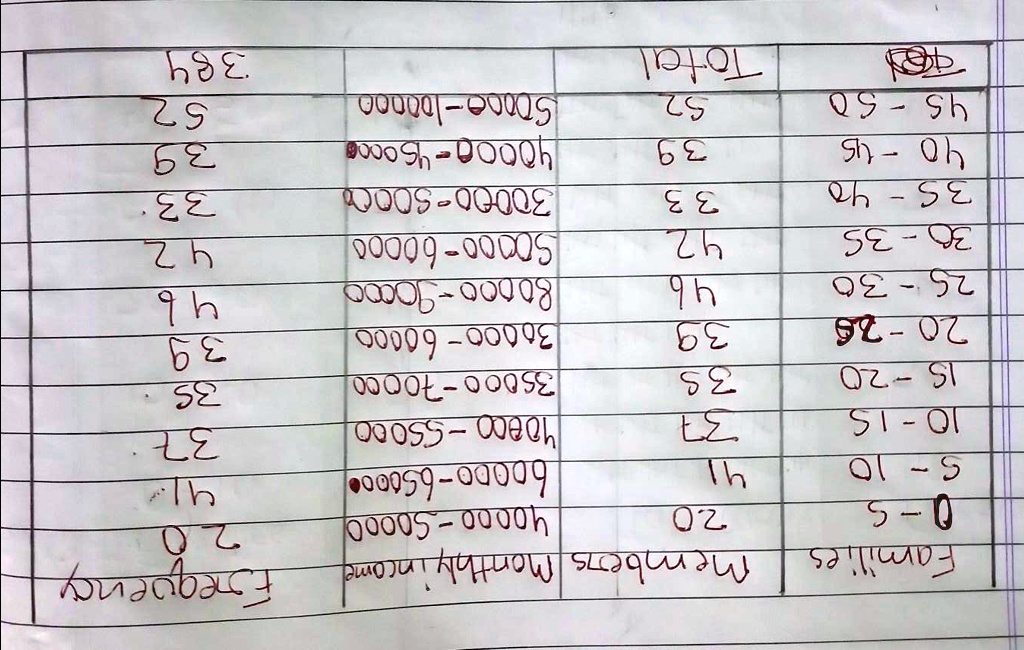 Families Members Monthly income Freqvency
0-5 20 40000-50000 20
5-10 41 60000-65000 41
10-15 37 40000-55000 37
15-20 35 35000-70000 35
20-25 39 30000-60000 39
25-30 46 80000-90000 46
30-35 42 50000-60000 42
35-40 33 30000-50000 33
40-45 39 40000-45000 39
45-50 52 50000-100000 52
Total 384